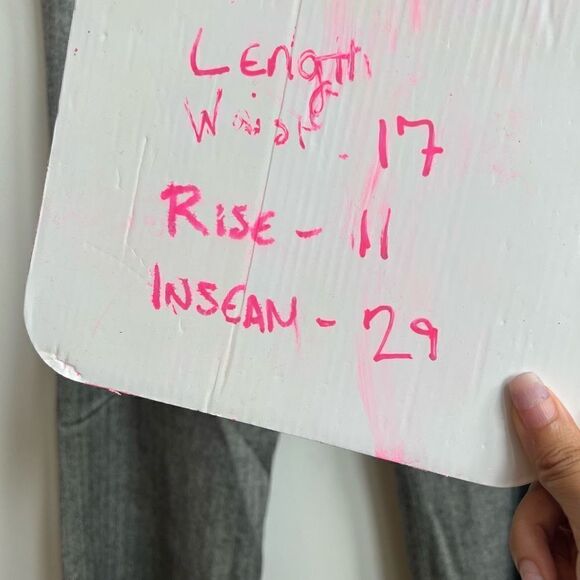 Length
Waist - 17
RISE - 11
INSEAM - 29